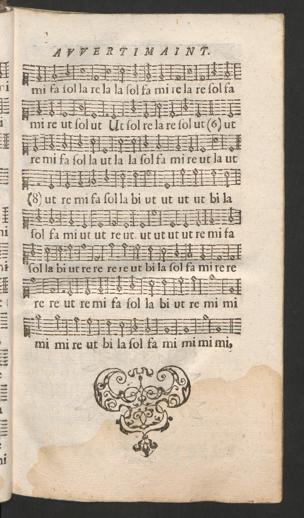 AVVERTIMAINT.
mi fa sol la re la la sol fa mi re la re sol fa
mi re ut sol ut Ut sol re la re sol ut (6) ut
re mi fa sol la ut la la sol fa mi re ut la ut
(8) ut re mi fa sol la bi ut ut ut ut bi la
sol fa mi ut ut re ut ut ut ut ut re mi fa
sol la bi ut re re re re ut bi la sol fa mi re re
re re ut re mi fa sol la bi ut re mi mi
mi mi re ut bi la sol fa mi mi mi mi,